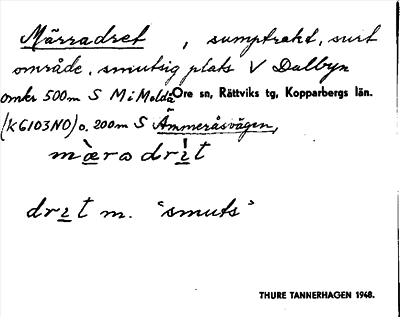 Märradret, sumptrakt, surt
område, smutsig plats V Dalbyn
omkr 500m S M i Moldå Ore sn, Rättviks tg, Kopparbergs län.
(KG103NO) o. 200m S Ämmeråsvägen,
mæ̀ra drı̀t
drıt m. "smuts"
THURE TANNERHAGEN 1948.